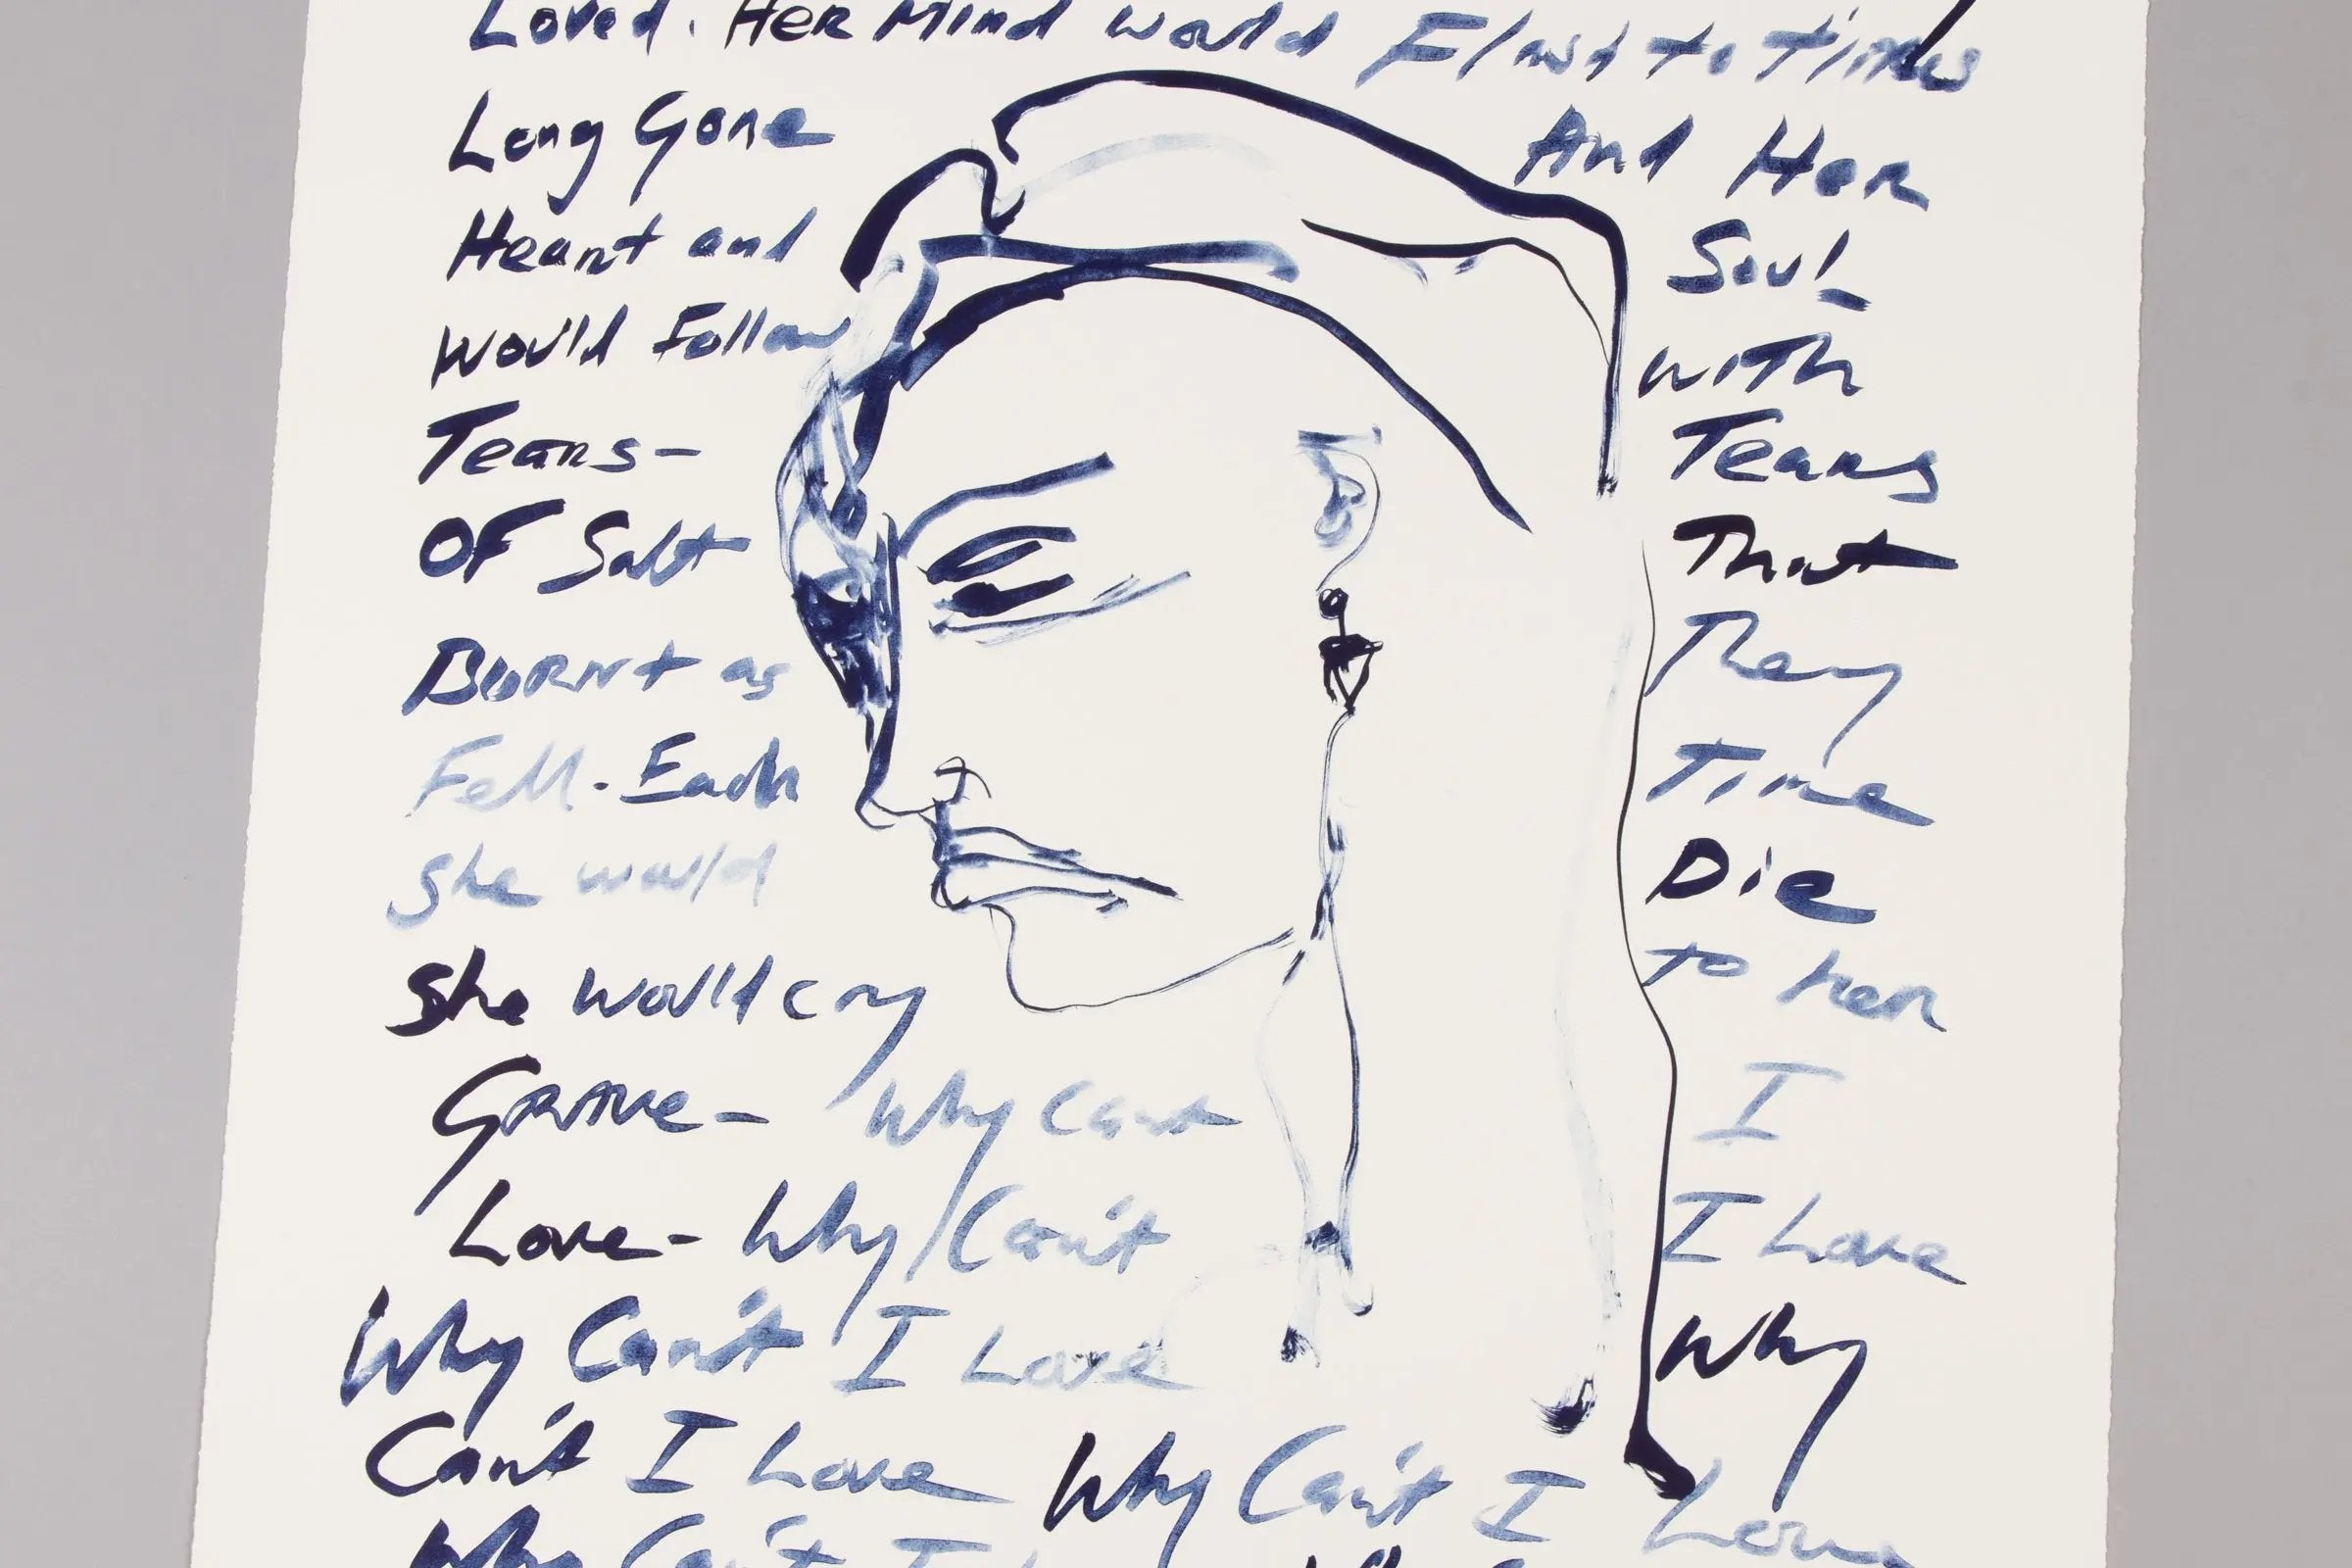 Loved. Her Mind would Flash to times
Long Gone And Her
Heart and Soul
would Follow with
Tears- Tears
OF Salt That
Burnt as They
Fell. Each Time
She would Die
She would cry to her
Grave- Why Cant I
Love- Why Can't I Love
Why Can't I Love Why
Can't I Love Why Can't I Love
Why Can't I